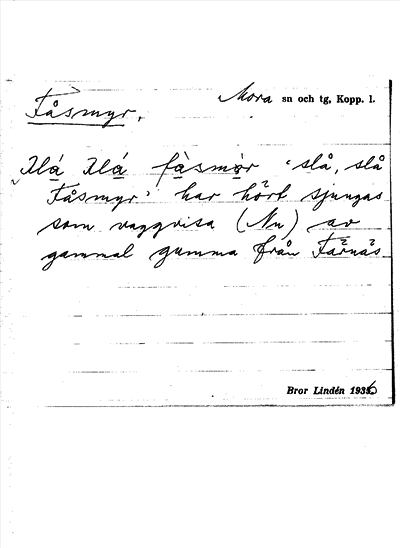 Mora sn och tg, Kopp. l.
Fåsmyr.
slá slá fàsmør 'slå, slå
Fåsmyr.' har hört sjungas
som vaggvisa (Nu) av
gammal gumma från Färnäs
Bror Lindén 1936